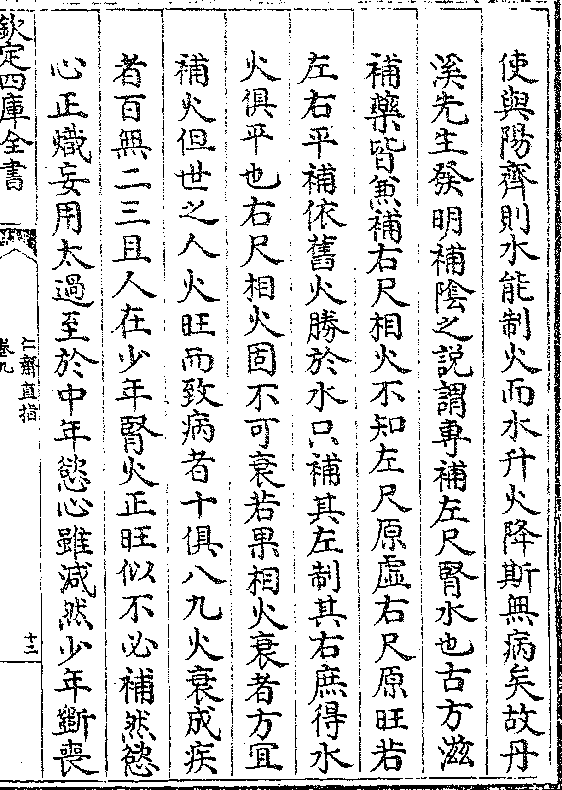 使與陽齊則水能制火而水升火降斯無病矣故丹
溪先生發明補陰之說謂專補左尺腎水也古方滋
補藥皆兼補右尺相火不知左尺原虛右尺原旺若
左右平補依舊火勝於水只補其左制其右庶得水
火俱平也右尺相火固不可衰若果相火衰者方宜
補火但世之人火旺而致病者十俱八九火衰成疾
者百無二三且人在少年腎火正旺似不必補然慾
心正熾妄用太過至於中年慾心雖減然少年斵喪
欽定四庫全書
仁齋直指
卷九
十三